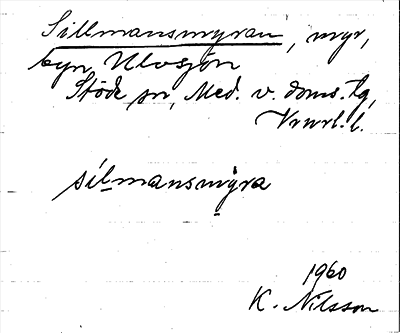 Sillmansmyran, myr,
byn Ulvsjön
Stöde sn, Med. v. doms. tg,
Vrnrl. l.
sílmansmy̠ra
1960
K. Nilsson